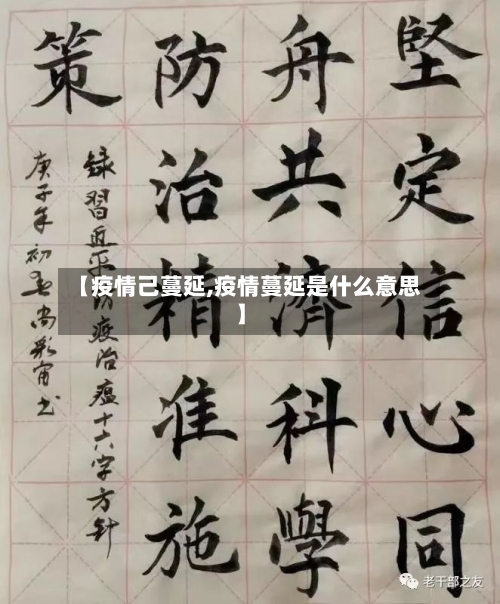 堅定信心同
舟共濟科學
防治精准施
策
録習近平防疫治瘟十六字方針
庚子年初春尚彩甯书
【疫情己蔓延,疫情蔓延是什么意思
】
老干部之友